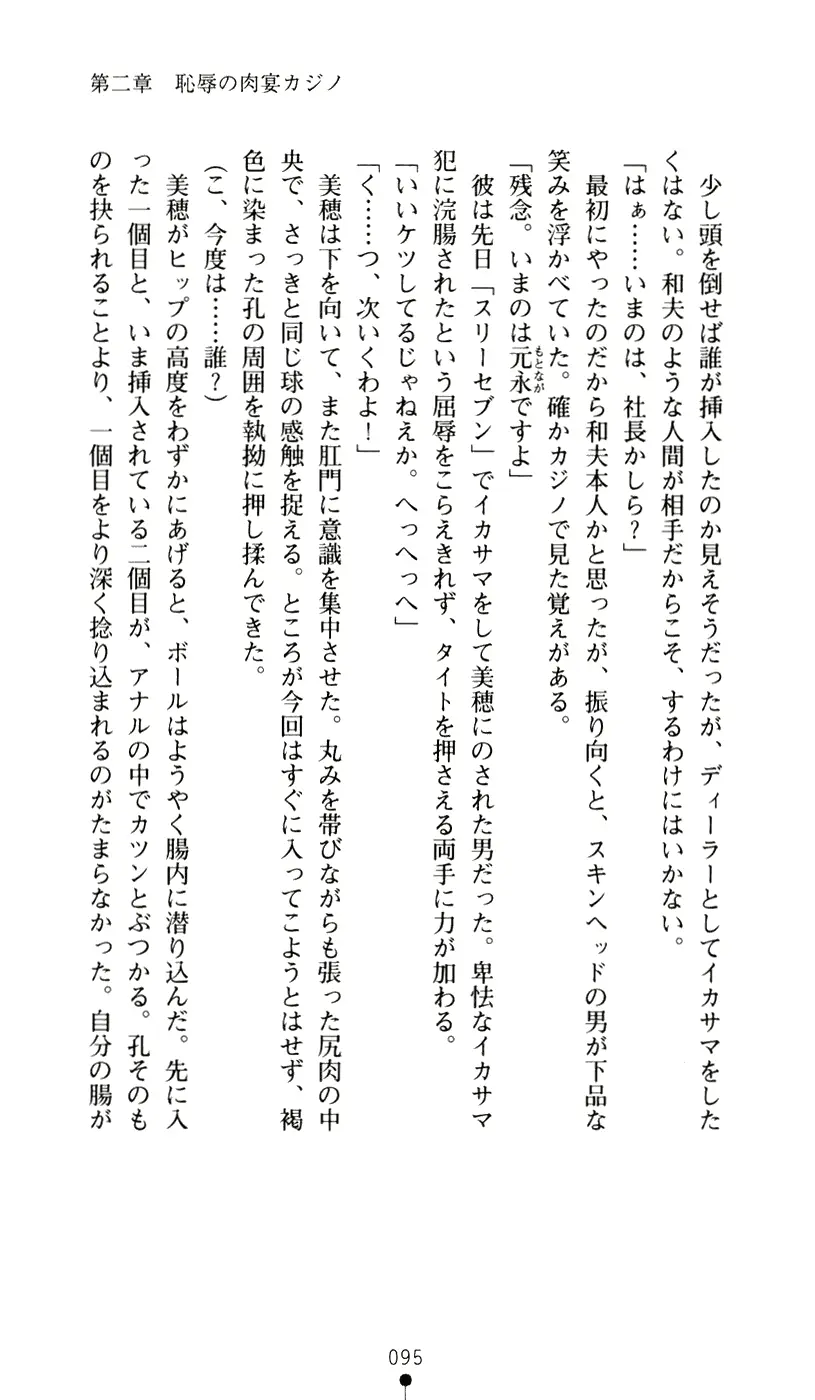 第二章　恥辱の肉宴カジノ
少し頭を倒せば誰が挿入したのか見えそうだったが、ディーラーとしてイカサマをした
くはない。和夫のような人間が相手だからこそ、するわけにはいかない。
「はぁ……いまのは、社長かしら？」
最初にやったのだから和夫本人かと思ったが、振り向くと、スキンヘッドの男が下品な
笑みを浮かべていた。確かカジノで見た覚えがある。
「残念。いまのは元永ですよ」
もとなが
彼は先日「スリーセブン」でイカサマをして美穂にのされた男だった。卑怯なイカサマ
犯に浣腸されたという屈辱をこらえきれず、タイトを押さえる両手に力が加わる。
「いいケツしてるじゃねえか。へっへっへ」
「く……つ、次いくわよ！」
美穂は下を向いて、また肛門に意識を集中させた。丸みを帯びながらも張った尻肉の中
央で、さっきと同じ球の感触を捉える。ところが今回はすぐに入ってこようとはせず、褐
色に染まった孔の周囲を執拗に押し揉んできた。
（こ、今度は……誰？）
美穂がヒップの高度をわずかにあげると、ボールはようやく腸内に潜り込んだ。先に入
った一個目と、いま挿入されている二個目が、アナルの中でカツンとぶつかる。孔そのも
のを抉られることより、一個目をより深く捻り込まれるのがたまらなかった。自分の腸が
095